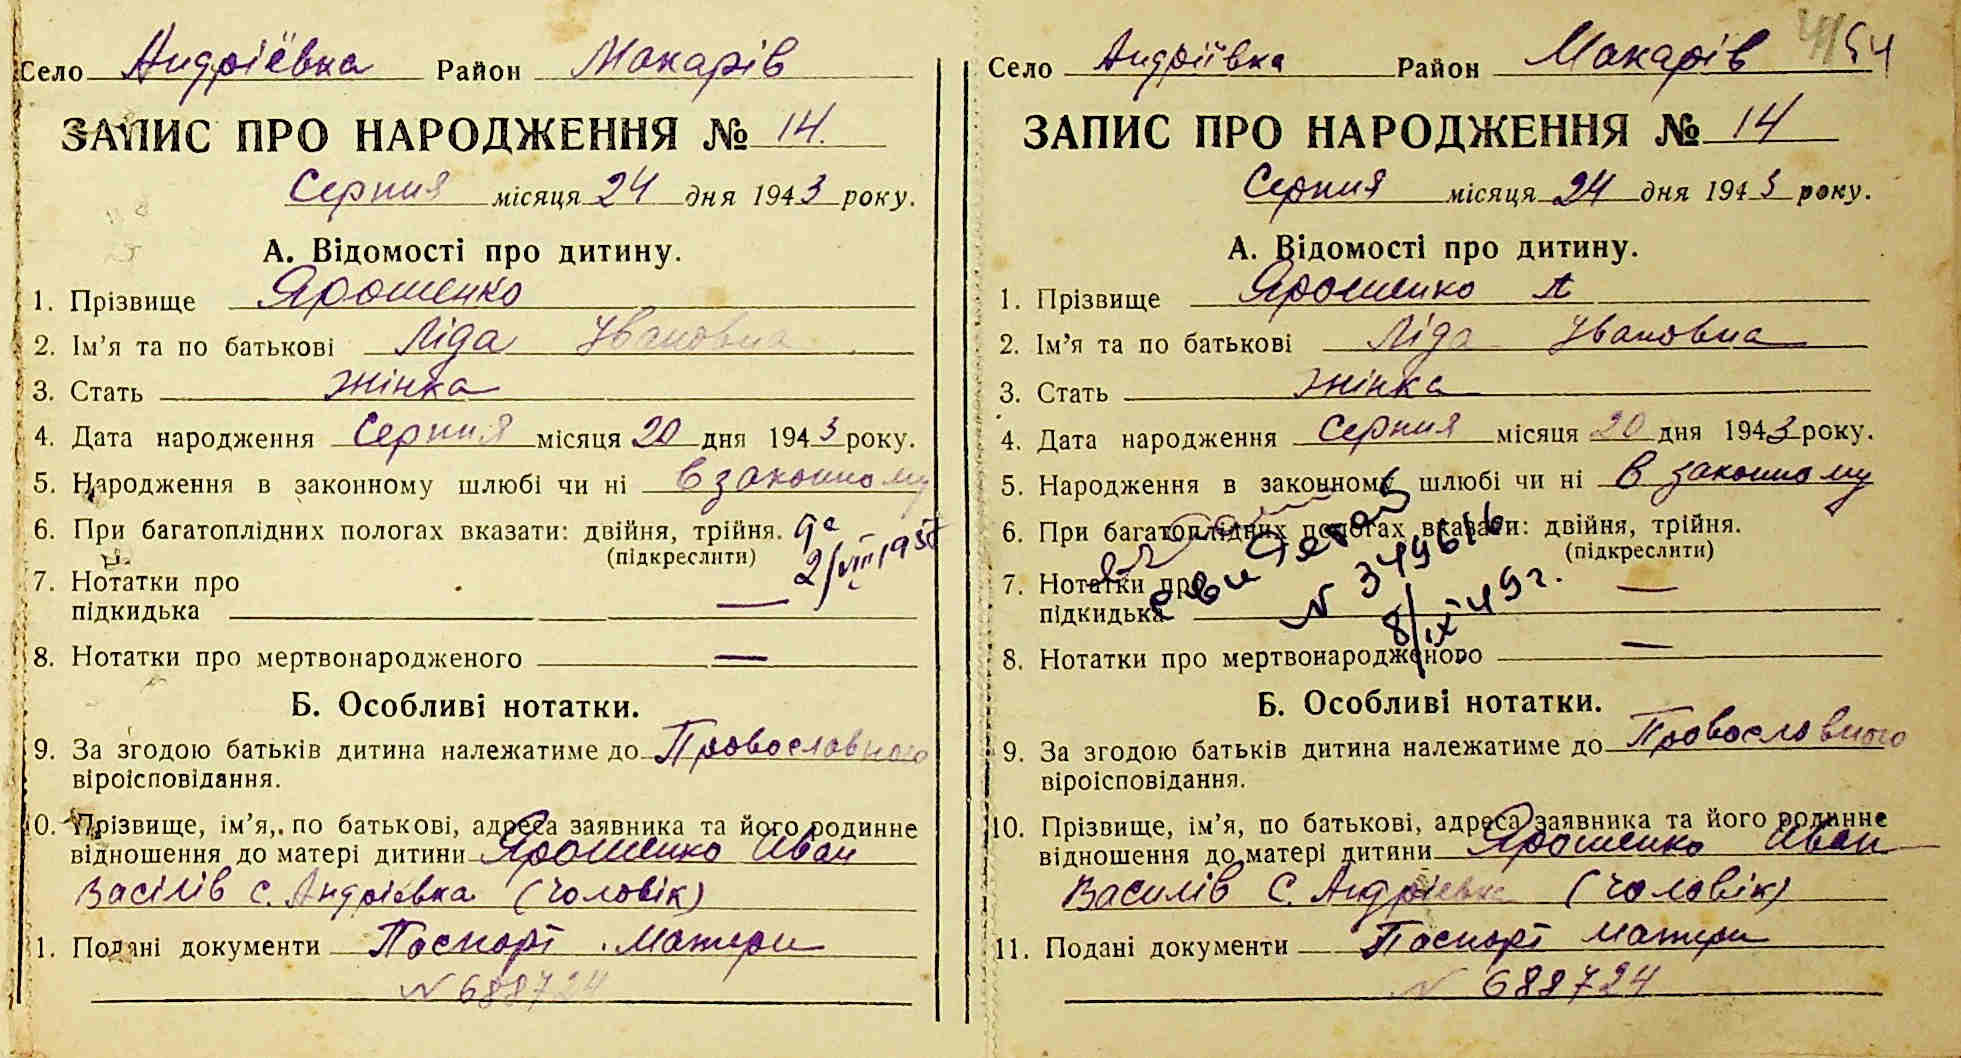 Село Андріёвка Район Макарів
ЗАПИС ПРО НАРОДЖЕННЯ № 14.
Серпня місяця 24 дня 1943 року.
А. Відомості про дитину.
1. Прізвище Ярошенко
2. Ім'я та по батькові Ліда Івановна
3. Стать жінка
4. Дата народження Серпня місяця 20 дня 1943 року.
5. Народження в законному шлюбі чи ні в законному
6. При багатоплідних пологах вказати: двійня, трійня.
(підкреслити)
2/VIII 195
7. Нотатки про
підкидька —
8. Нотатки про мертвонародженого —
Б. Особливі нотатки.
9. За згодою батьків дитина належатиме до Провославного
віроісповідання.
10. Прізвище, ім'я, по батькові, адреса заявника та його родинне
відношення до матері дитини Ярошенко Иван
Васілів с. Андріевка (чоловік)
1. Подані документи Паспорт матери
N 688724
Село Андріївка Район Макарів 54
ЗАПИС ПРО НАРОДЖЕННЯ № 14
Серпня місяця 24 дня 1943 року.
А. Відомості про дитину.
1. Прізвище Ярошенко
2. Ім'я та по батькові Ліда Івановна
3. Стать жінка
4. Дата народження Серпня місяця 20 дня 1943 року.
5. Народження в законному шлюбі чи ні в законному
6. При багатоплідних пологах вказати: двійня, трійня.
(підкреслити)
7. Нотатки про
підкидька —
N 349616
8/IX 49 г.
8. Нотатки про мертвонародженого —
Б. Особливі нотатки.
9. За згодою батьків дитина належатиме до Провославного
віроісповідання.
10. Прізвище, ім'я, по батькові, адреса заявника та його родинне
відношення до матері дитини Ярошенко Иван
Василів С. Андріевка (чоловік)
11. Подані документи Паспорт матери
N 688724